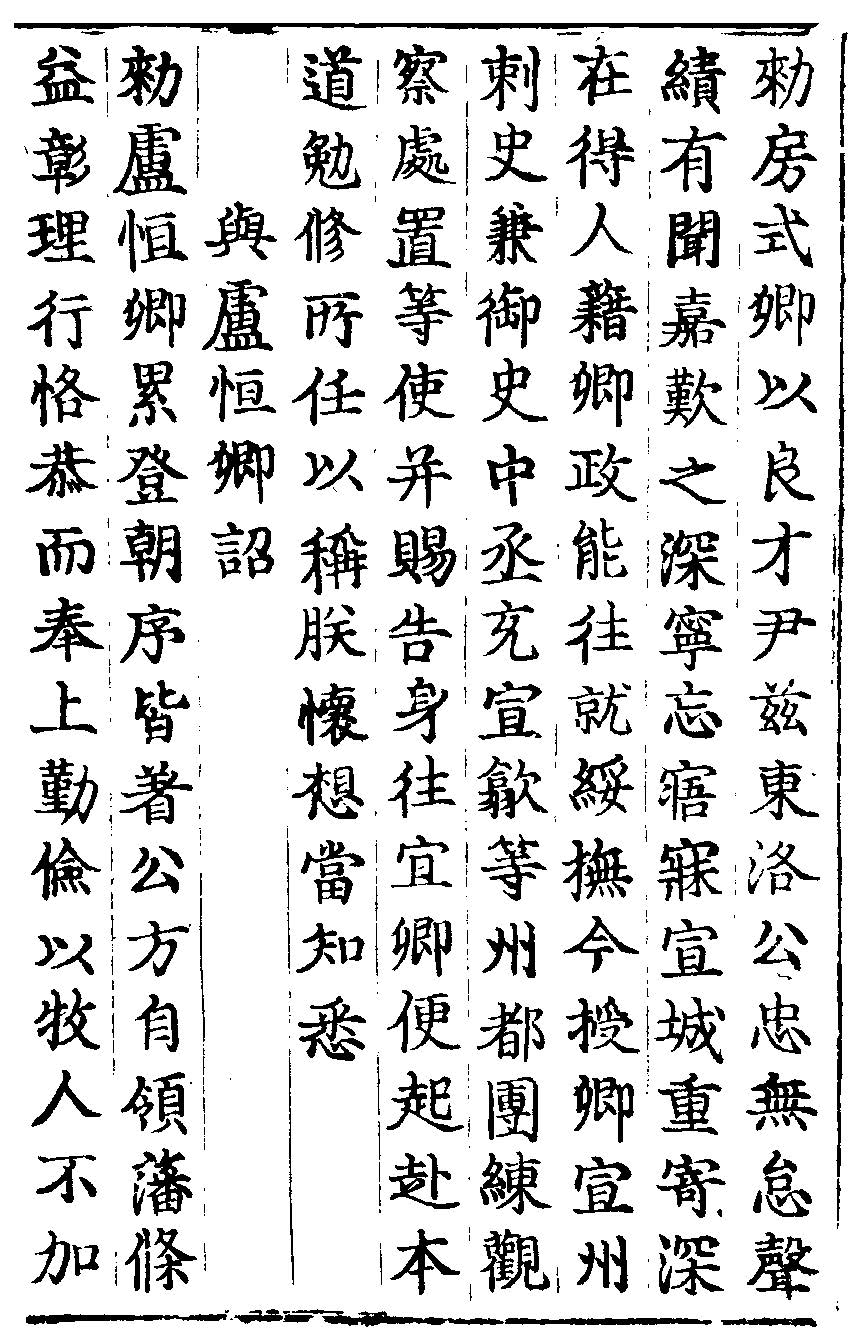 勑房式卿以良才尹兹東洛公忠無怠聲
績有聞嘉歎之深寧忘寤寐宣城重寄深
在得人藉卿政能往就綏撫今授卿宣州
刺史兼御史中丞充宣歙等州都團練觀
察處置等使并賜告身往宜卿便起赴本
道勉修所任以稱朕懷想當知悉
與盧恒卿詔
勑盧恒卿累登朝序皆著公方自領藩條
益彰理行恪恭而奉上勤儉以牧人不加